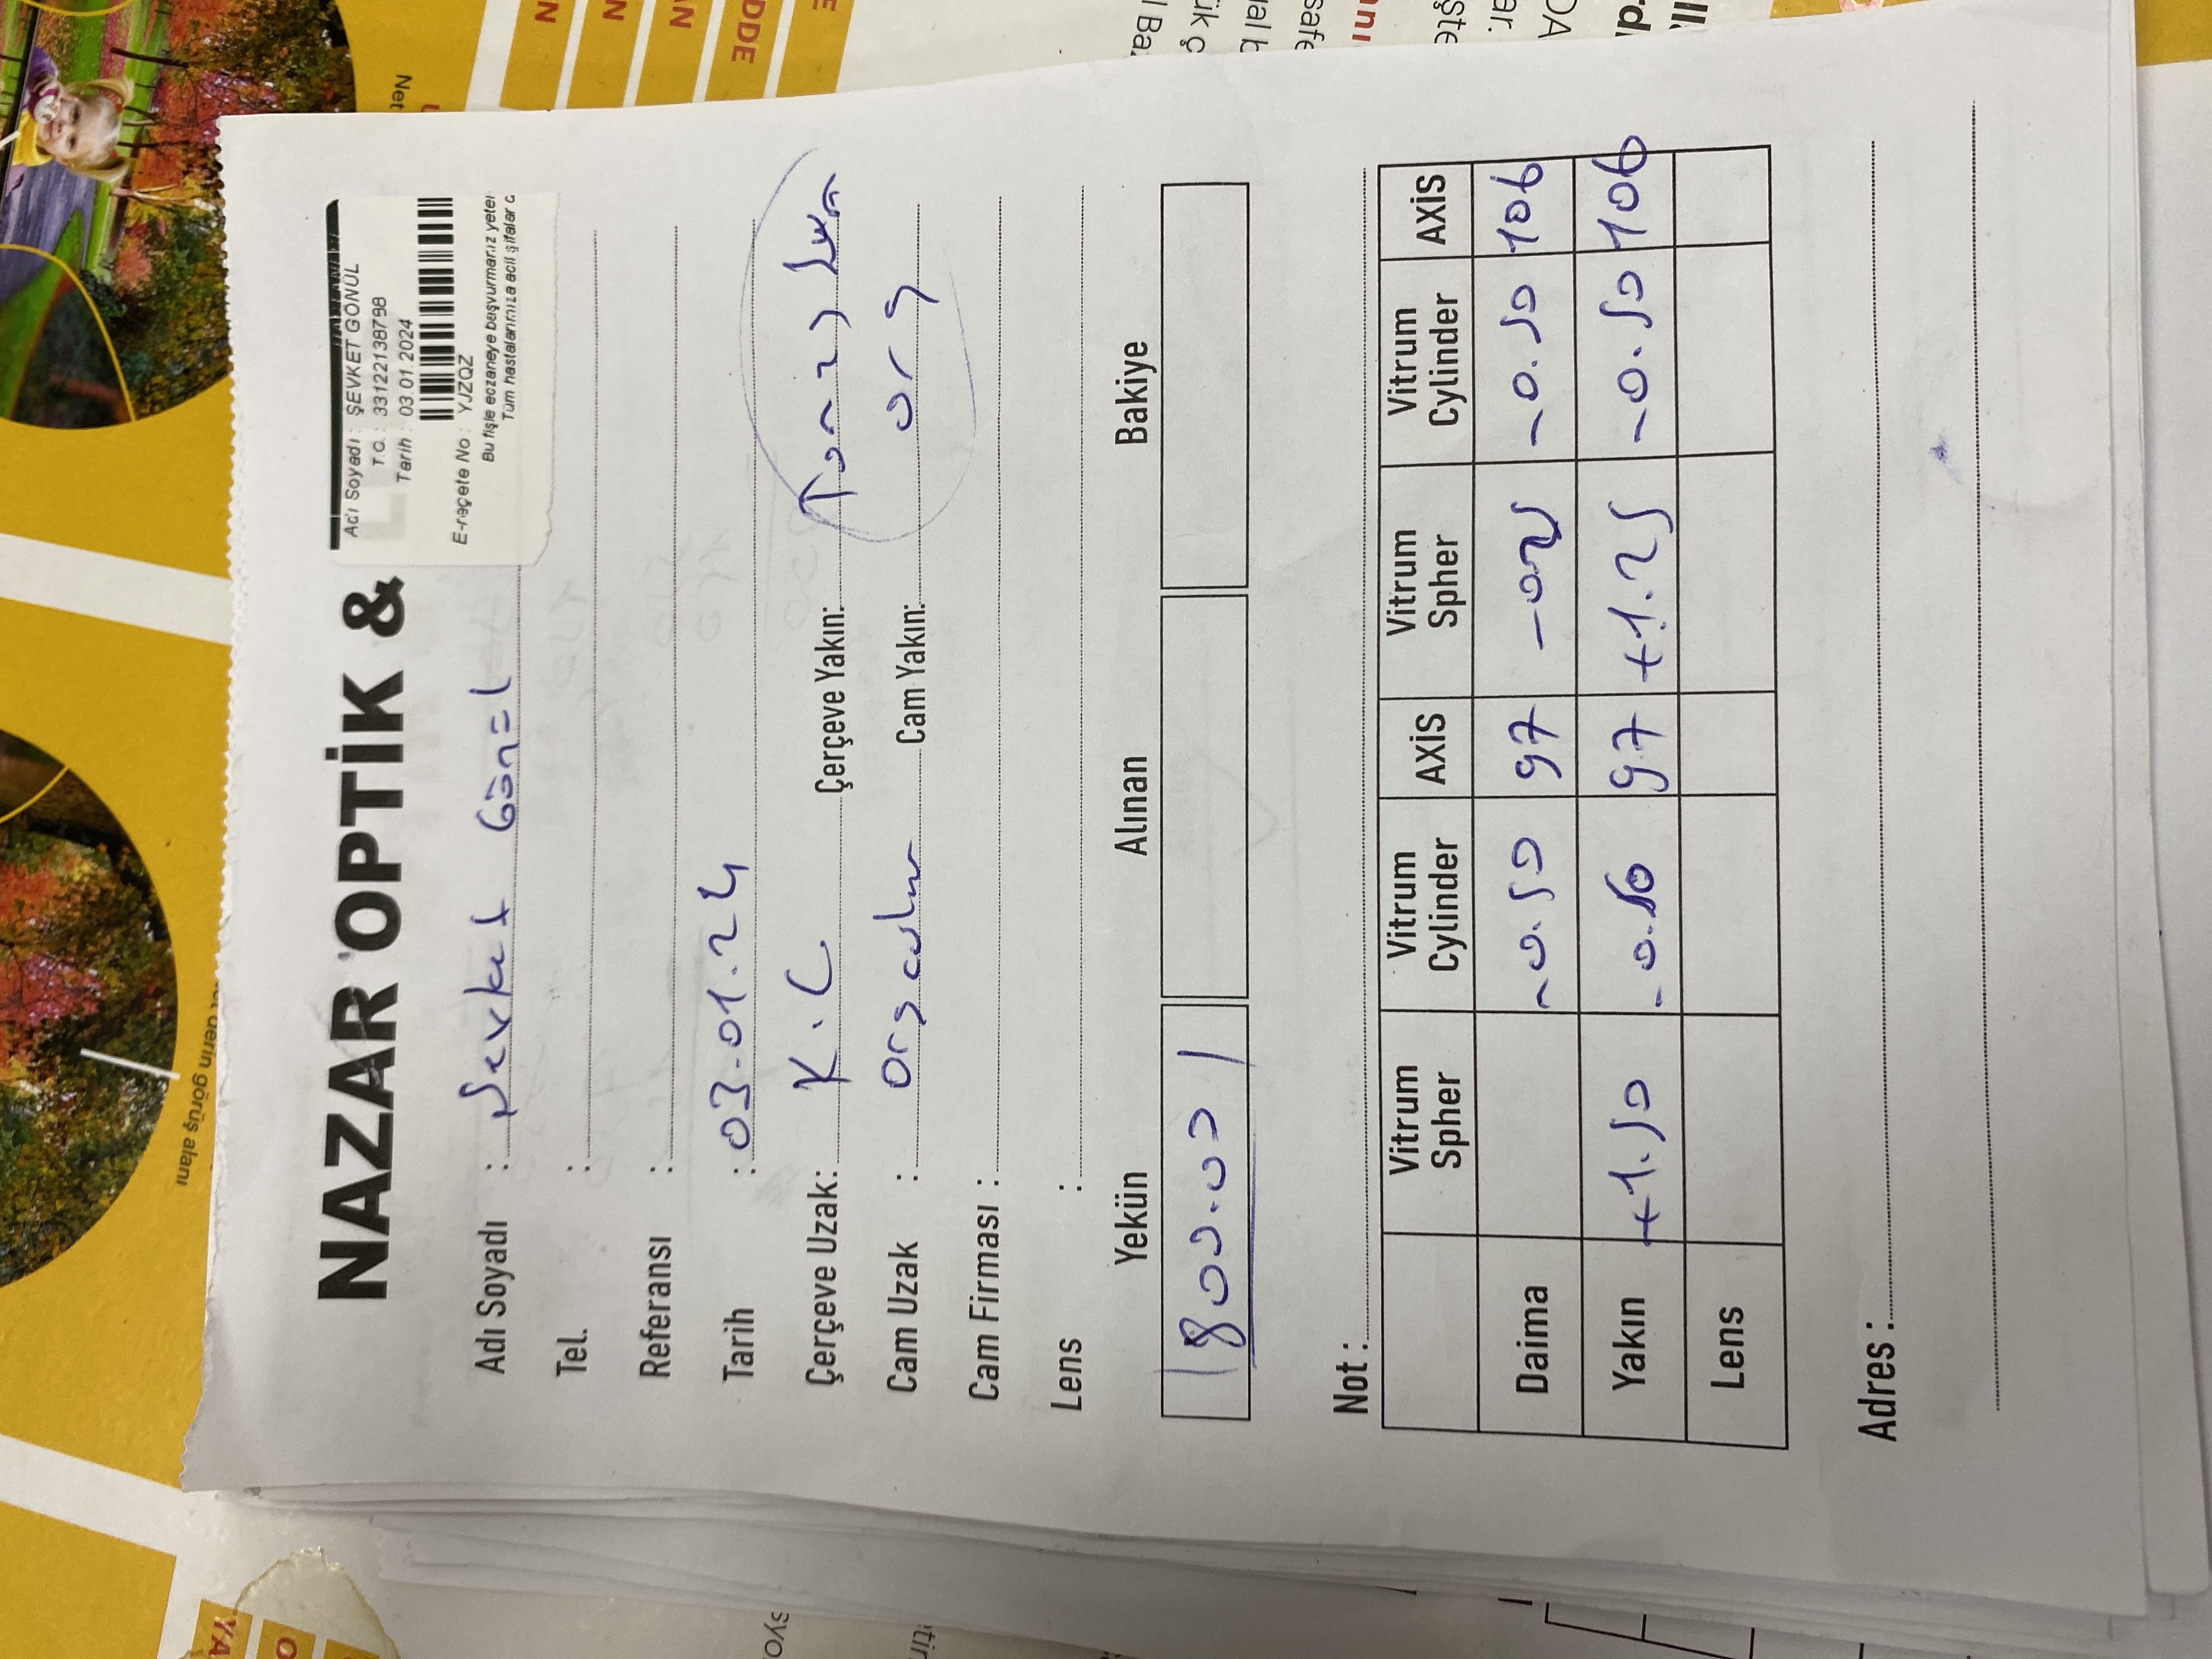 et derin görüş alanı
NAZAR OPTİK &
Adı Soyadı : ŞEVKET GÖNÜL
T.C. : 33122138798
Tarih : 03.01.2024
E-reçete No : YJZQZ
Bu fişle eczaneye başvurmanız yeter
Tüm hastalarımıza acil şifalar d
Adı Soyadı : Şevket Gönül
Tel. :
Referansı :
Tarih : 03.01.24
Çerçeve Uzak: K.C. Çerçeve Yakın:
Cam Uzak : Cam Yakın: org
Cam Firması :
Lens :
Yekün Alınan Bakiye
800.00
Not :
Vitrum Spher Vitrum Cylinder AXİS Vitrum Spher Vitrum Cylinder AXİS
Daima -0.50 97 -0.25 -0.50 106
Yakın +1.50 -0.50 97 +1.25 -0.50 106
Lens
Adres :
Net